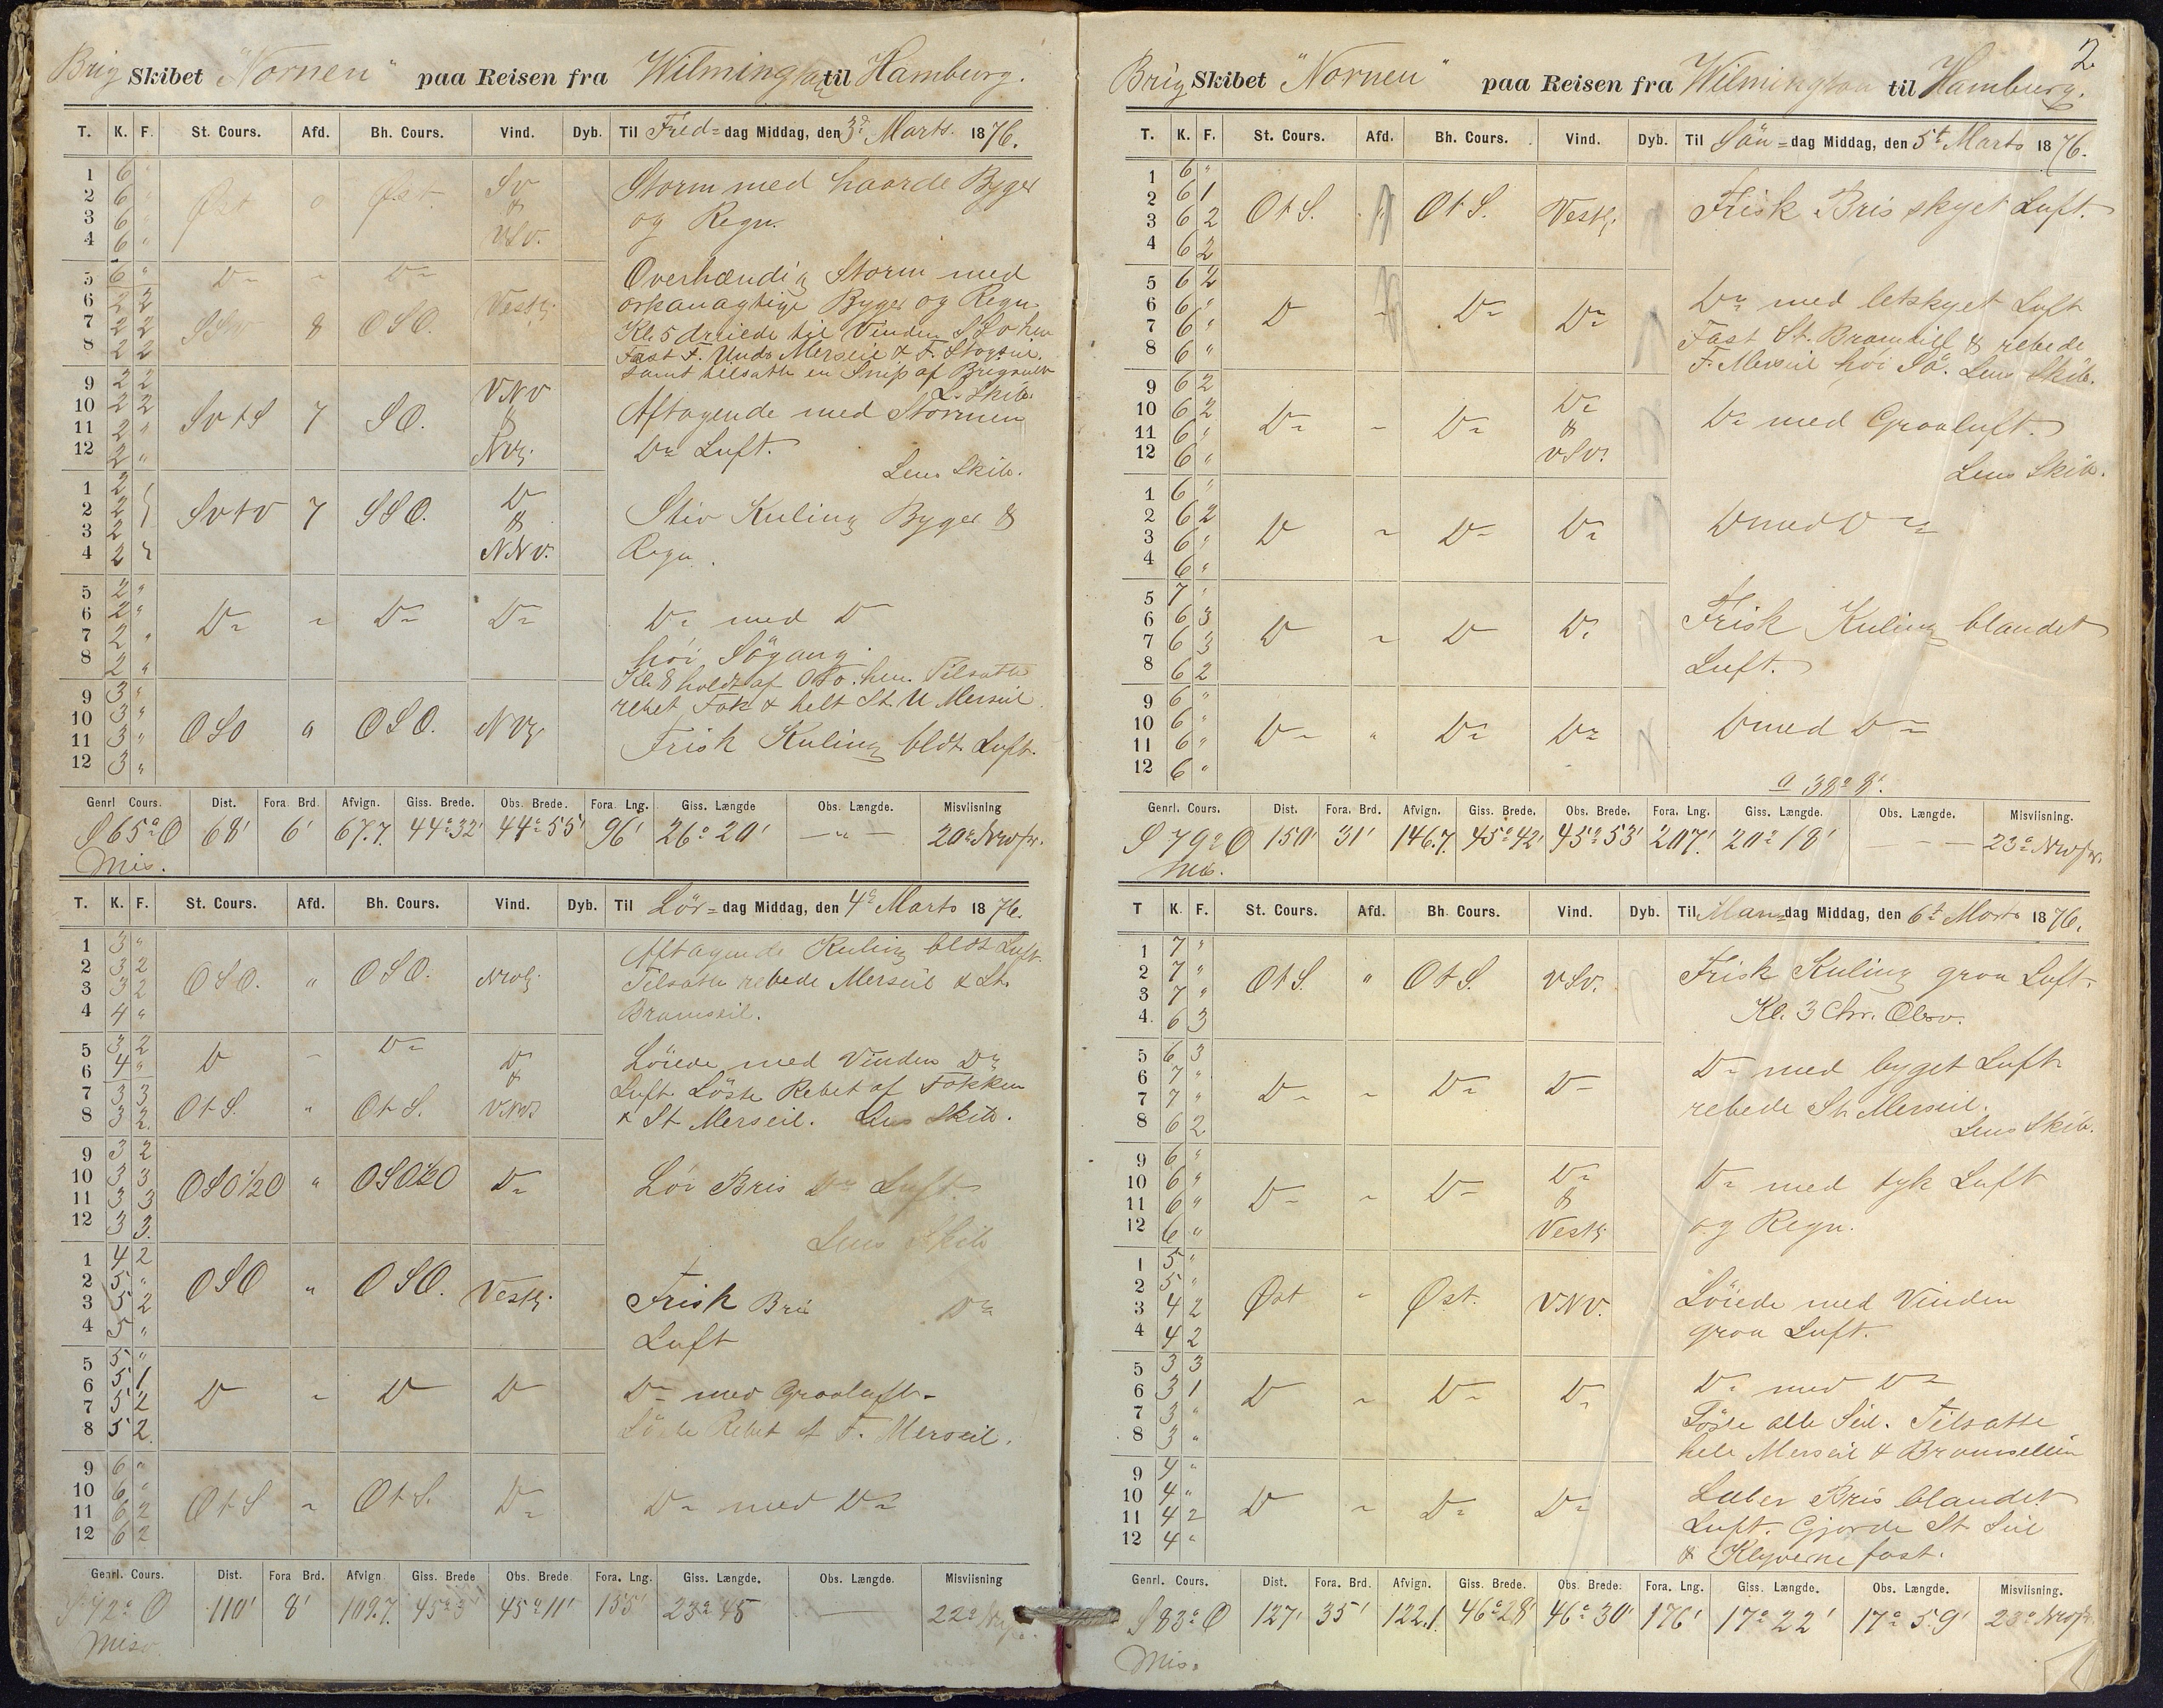 Brig Skibet "Nornen" paa Reisen fra Wilmington til Hamburg.
T. K. F. St. Cours. Afd. Bh. Cours. Vind. Dyb. Til Fred=dag Middag, den 3d Marts. 1876.
1 6 "
2 6 " Øst o Øst. Sv & VSv. Storm med haarde Byger
3 6 " og Regn.
4 6 "
5 6 " D~ ~ D~ Overhændig Storm med
6 2 2 Vestl. orkanagtige Byger og Regn
7 2 2 8 OSO. Kl. 5 dreiede til Vinden
8 2 2 Fast F. Unds Merseil & F. Stagseil.
samt tilsatte en Snip af
L. Skib.
9 2 2 VNV Aftagende med Stormen
10 2 2 SvtS 7 SO. &
11 2 " NV. D~ Luft.
12 2 " Lens Skib.
1 2
2 2 Svtv 7 SSO. D & Stiv Kuling Byger &
3 2 NNV. Regn.
4 2
5 2 "
6 2 " D~ ~ D~ D~ D~ med D
7 2 " høi Søgang.
8 2 " Kl. 8 holdt af OSO. hen. Tilsatte
rebet Fok & helt St. U Merseil.
9 3 "
10 3 " OSO " OSO. NV.
11 3 " Frisk Kuling bldt Luft.
12 3 "
Genrl Cours. Dist. Fora Brd. Afvign. Giss. Brede. Obs. Brede. Fora. Lng. Giss. Længde Obs. Længde. Misviisning
S 65° O 68' 6' 67.7. 44°32' 44°55' 96' 26° 20' — " — 20°
Mis.
T. K. F. St. Cours. Afd. Bh. Cours. Vind. Dyb. Til Lör=dag Middag, den 4d Marts 1876.
1 3 " Aftagende Kuling bldt Luft.
2 3 2 OSO. " OSO. Tilsatte rebede Merseil & St.
3 3 2 Bramseil.
4 4 "
5 3 2 D ~ D~ D & Löiede med Vinden D~
6 4 " Luft. Löste Rebet af Fokken
7 3 3 OtS. " OtS. VNV. & St Merseil. Lens Skib.
8 3 2
9 3 2
10 3 3 OSO½O " OSO½O D~ Löi Bris D~ Luft
11 3 3
12 3 3. Lens Skib
1 4 2
2 5 " OSO " OSO. Vestl. Frisk Bris D~
3 5 2 Luft
4 5 "
5 5 "
6 5 1 D ~ D D D~ med Graaluft.
7 5 2 Löste Rebet af F. Merseil.
8 5 2.
9 6 "
10 6 " OtS ~ OtS. D~ D~ med D~
11 6 2
12 6 2
Genrl. Cours. Dist. Fora Brd. Afvign Giss. Brede Obs. Brede Fora. Lng. Giss. Længde. Obs. Længde. Misviisning
110' 8' 109.7. 45° 45°11' 155' 23° 45 — 22°
Misv.
2.
Brig Skibet "Nornen" paa Reisen fra Wilmington til Hamburg.
T. K. F. St. Cours. Afd. Bh. Cours. Vind. Dyb. Til Sön=dag Middag, den 5t Marts 1876.
1 6 "
2 6 1 OtS. " OtS. Vestl. Frisk Bris skyet Luft.
3 6 2
4 6 2
5 6 2
6 6 " D ~ D~ D~ D~ med letskyet Luft
7 6 " Fast St. Bramseil & rebede
8 6 " F. Merseil høi Sø. Lens Skib.
9 6 2
10 6 2 D~ ~ D~ D~ & VSV. D~ med Graaluft.
11 6 "
12 6 " Lens Skib.
1 6 "
2 6 2 D ~ D~ D~ D med D~
3 6 "
4 6 "
5 7 "
6 6 3 D ~ D D~ Frisk Kuling blandet
7 6 3 Luft.
8 6 2
9 6 "
10 6 " D~ " D~ D~ D med D~
11 6 "
12 6 "
a 38° 8'.
Genrl. Cours. Dist. Fora. Brd. Afvign. Giss. Brede. Obs. Brede. Fora. Lng. Giss. Længde. Obs. Længde. Misviisning.
S 79° O 150' 31' 146.7. 45°42' 45°53' 207' 20° 18' — — — 23°
Mis.
T K. F. St. Cours. Afd. Bh. Cours. Vind. Dyb. Til Man=dag Middag, den 6t Marts 1876.
1 7 "
2 7 " OtS. " OtS. VSV. Frisk Kuling graa Luft.
3 7 "
4. 6 3 Kl. 3 Chr. Obsv.
5 6 3
6 7 " D~ ~ D~ D~ D~ med byget Luft
7 7 " rebede St. Merseil.
8 6 2 Lens Skib.
9 6 "
10 6 " D~ ~ D~ D~ & D~ med tyk Luft
11 6 " Vestl. og Regn.
12 6 "
1 5 "
2 5 " Øst " Øst. VNV. Löiede med Vinden
3 4 2 graa Luft.
4 4 2
5 3 3
6 3 1 D ~ D~ D~ D~ med D~
7 3 " Löste alle Seil. Tilsatte
8 3 " hele Merseil & Bramseilen
9 4 "
10 4 " D ~ D~ D~ Laber Bris blandet
11 4 2 Luft. Gjorde St. Seil
12 4 " & Klyverne fast.
Genrl. Cours. Dist. Fora. Brd. Afvign. Giss. Brede. Obs. Brede. Fora. Lng. Giss. Længde. Obs. Længde. Misviisning.
S 83° O 127' 35' 122.1. 46°28' 46°30' 176' 17° 22' 17° 59' 23°
Mis.